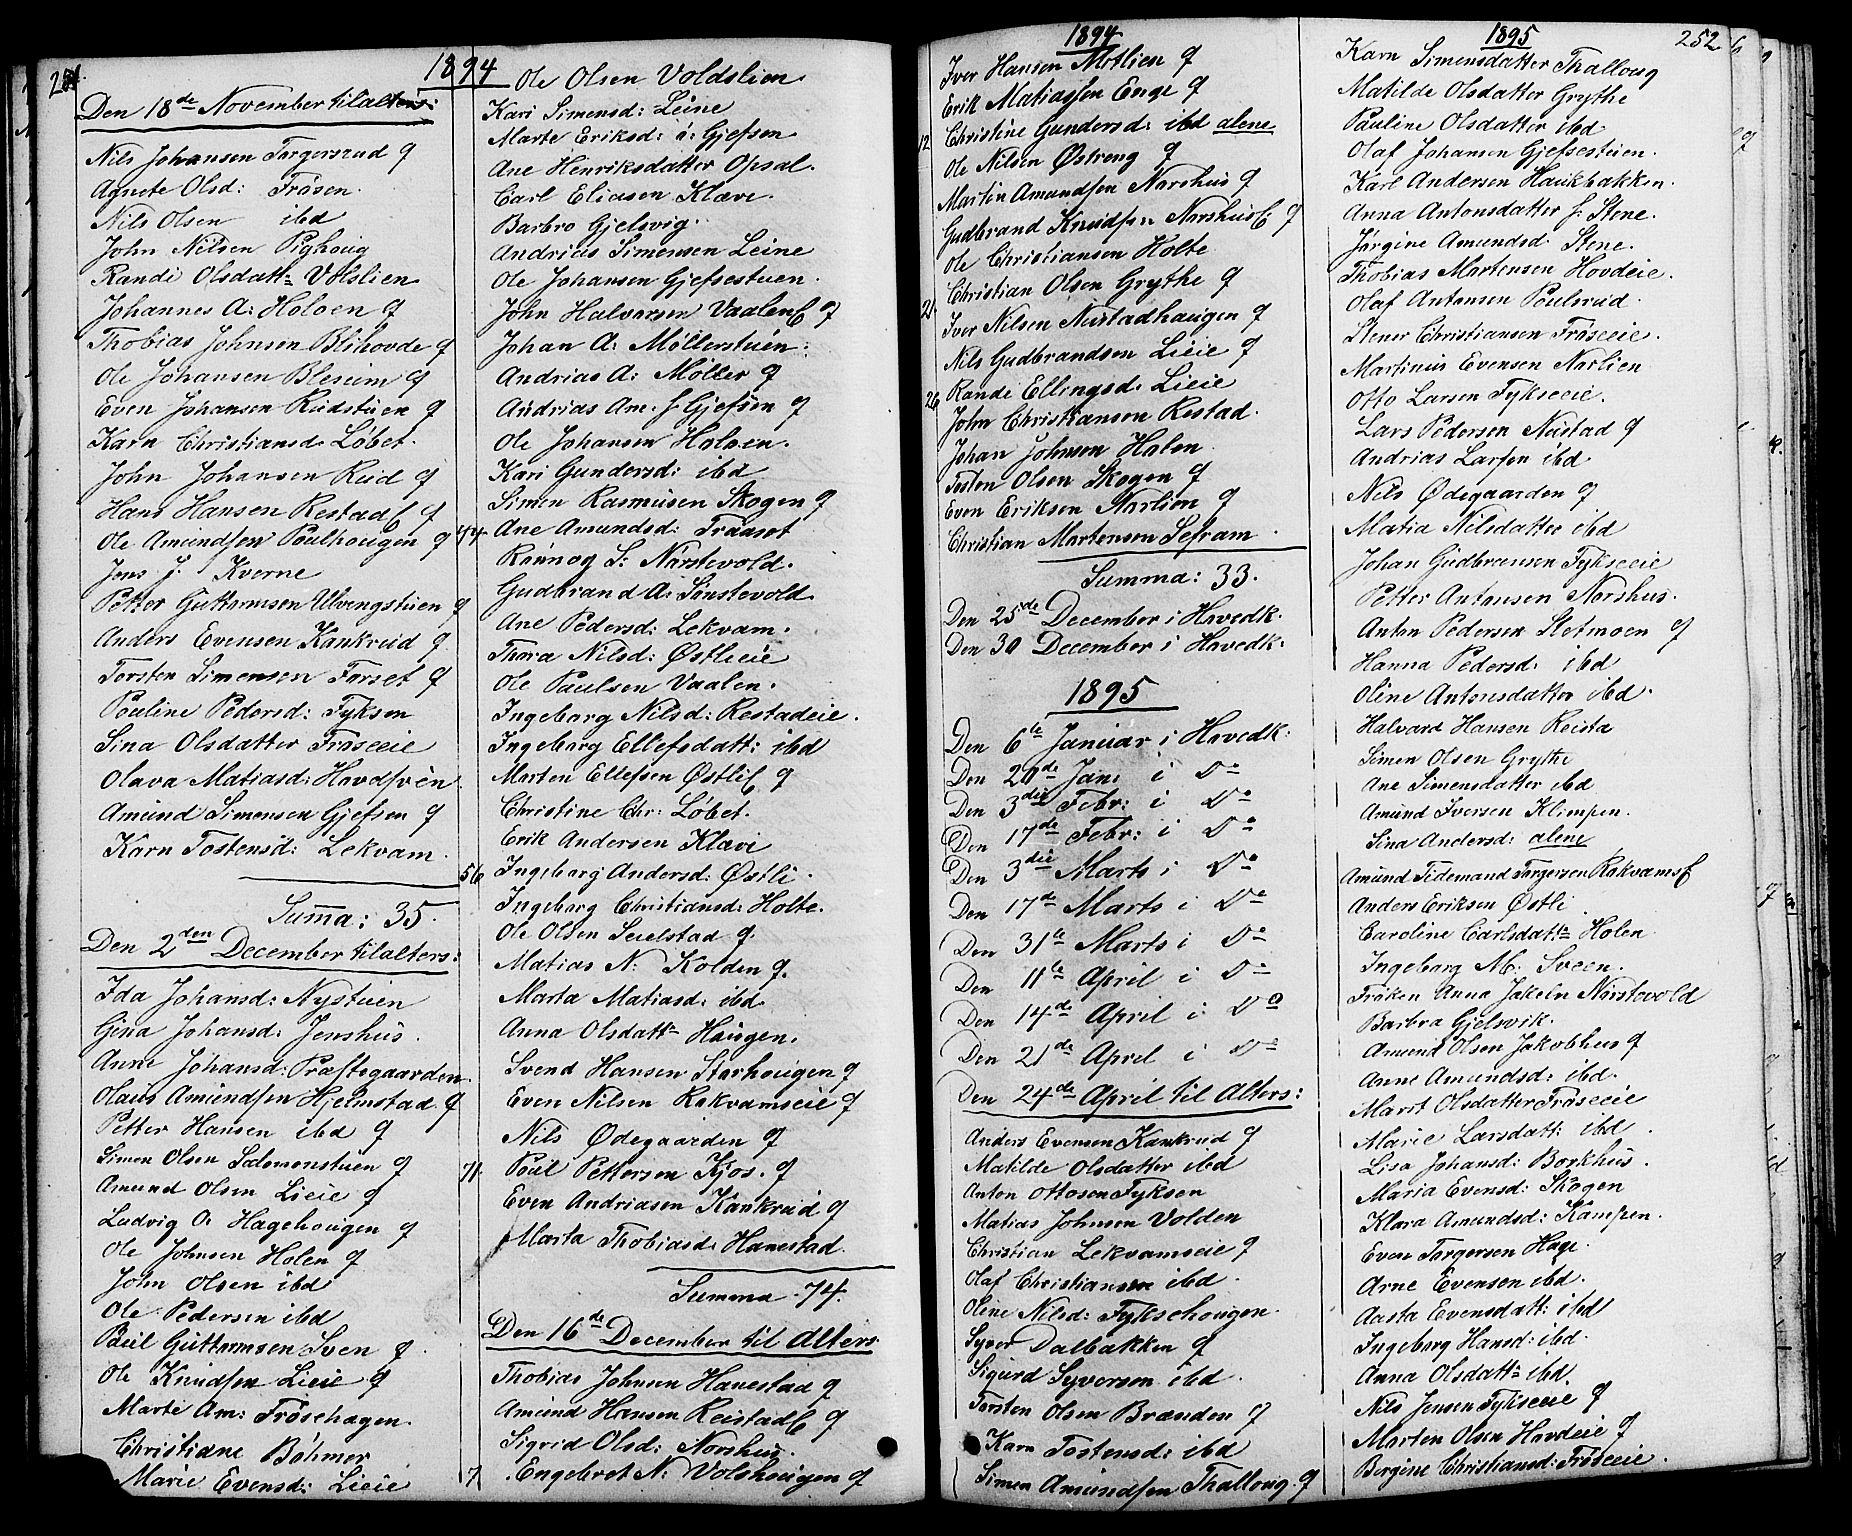 251.
1894
Den 18de November tilalters:
Nils Johansen Torgersrud g
Agnete Olsd: Frøsen.
Nils Olsen ibd
John Nilsen Pighoug
Randi Olsdatt= Volslien
Johannes A: Holoen g
Thobias Johnsen Blihovde g
Ole Johansen Blesum g
Even Johansen Rudstuen g
Karn Christiansd: Løbet.
John Johansen Rud g
Hans Hansen Restad g
Ole Amundsen Poulhougen g
Jens J. Kverne
Petter Guttormsen Ulvengstuen g
Anders Evensen Kankrud g
Torsten Simensen Forset g
Pouline Pedersd: Fyksen
Sina Olsdatter Frøseeie
Olava Matiasd: Hovdsven
Amund Simensen Gjefsen g
Karn Tostensd: Lekvam.
Summa: 35.
Den 2den December tilalters:
Ida Johansd: Nystuen
Gjna Johansd: Jenshus.
Anne Johansd: Præstegaarden
Olaus Amundsen Hjelmstad g
Petter Hansen ibd g
Simen Olsen Salomonstuen g
Amund Olsen Lieie g
Ludvig O. Hagehougen g
Ole Johnsen Holen g
John Olsen ibd
Ole Pedersen ibd
Paul Guttormsen Sven g
Ole Knudsen Lieie g
Marte Am: Frøsehagen.
Christiane Bøhmer
Marie Evensd: Lieie
Ole Olsen Voldslien
Kari Simensd: Leine
Marte Eriksd: a: Gjefsen
Ane Henriksdatter Opsal.
Carl Eliasen Klævi.
Barbro Gjelsvig.
Andrias Simensen Leine
Ole Johansen Gjefsestuen.
John Halvorsen Vaalen g
Johan A: Møllerstuen:
Andrias A: Møller g
Andrias Am. f Gjefsen g
Ole Johansen Holoen.
Kari Gundersd: ibd
Simen Rasmusen Skogen g
44 Ane Amundsd: Fraaset
Rønnog S: Nørstevold.
Gudbrand A: Sønstevold.
Ane Pedersd: Lekvam.
Thora Nilsd: Østlieie
Ole Paulsen Vaalen.
Ingeborg Nilsd: Restadeie.
Ingeborg Ellefsdatt: ibd
Morten Ellefsen Østli g
Christine Chr: Løbet.
Erik Andersen Klævi
56 Ingeborg Andersd: Østli.
Ingeborg Christiansd: Holte.
Ole Olsen Seielstad g.
Matias N: Kolden g.
Marta Matiasd: ibd.
Anna Olsdatt= Haugen.
Svend Hansen Storhougen g
Even Nilsen Rokvamseie g
Nils Ødegaarden g
71. Poul Pettersen Kjos. g
Even Andriasen Kankrud g
Marta Thobiasd: Hanestad.
Summa. 74.
Den 16de December til Alters
Thobias Johnsen Hanestad g
Amund Hansen Reistad g
Sigrid Olsd: Norshus.
7. Engebret N: Volshougen g
1894
Iver Hansen Motlien g
Erik Matiassen Enge g
12 Christine Gundersd: ibd alene
Ole Nilsen Østreng g
Martin Amundsen Norshus g
Gudbrand Knudsen Norshus g
Ole Christiansen Holte
Christian Olsen Grythe g
21. Iver Nilsen Nustadhaugen g
Nils Gudbrandsen Lieie g
26 Rande Ellingsd: Lieie
John Christiansen Restad.
Johan Johnsen Holen
Tosten Olsen Skogen g
Even Eriksen Norlien g
Christian Mortensen Sefram.
Summa: 33.
Den 25de December i Hovedk.
Den 30 December i Hovedk:
1895
Den 6te Januar i Hovedk.
Den 20de Jan: i Do
Den 3die Febr: i Do
Den 17de Febr: i Do
Den 3die Marts i Do
Den 17de Marts i Do
Den 31te Marts i Do
Den 11te April i Do
Den 14de April i Do
Den 21de April i Do
Den 24de April til Alters:
Anders Evensen Kankrud g
Matilde Olsdatter ibd
Anton Ottosen Fyksen
Matias Johnsen Volden
Christian Lekvamseie g
Olaf Christiansen ibd.
Oline Nilsd: Fyksehougen.
Syver Dalbakken g
Sigurd Syversen ibd.
Torsten Olsen Brænden g
Karn Tostensd: ibd
Simen Amundsen Thalloug. g
1895
252
Karn Simensdatter Thalloug
Matilde Olsdatter Grythe
Pauline Olsdatter ibd
Olaf Johansen Gjefsestuen.
Karl Andersen Haukbakken.
Anna Antonsdatter f. Stene.
Jørgine Amundsd. Stene.
Thobias Mortensen Hovdeie.
Olaf Antonsen Poulsrud.
Stener Christiansen Frøseeie.
Martinus Evensen Norlien
Otto Larsen Fykseeie.
Lars Pedersen Nustad g
Andrias Larsen ibd.
Nils Ødegaarden g
Matia Nilsdatter ibd
Johan Gudbrensen Fykseeie
Petter Antonsen Norshus.
Anton Pedersen Sletmoen g
Hanna Pedersd: ibd
Oline Antonsdatter ibd.
Halvard Hansen Reista
Simen Olsen Grythe
Ane Simensdatter ibd
Amund Iversen Klimpen.
Sina Andersd: alene
Amund Tidemand Torgersen Rokvam
Anders Eriksen Østli
Caroline Carlsdatt= Holen.
Ingeborg M: Sveen.
Frøken Anna Jakeln Nørstevold
Barbra Gjelsvik.
Amund Olsen Jakobhus g
Anne Amundsd: ibd.
Marit Olsdatter Frøseeie
Marie Larsdatt: ibd
Lisa Johansd: Borkhus.
Maria Evensd: Skogen
Klara Amundsd: Kampen.
Even Torgersen Hage.
Arne Evensen ibd.
Aasta Evensdatt: ibd
Ingeborg Hansd: ibd.
Anna Olsdatt= ibd.
Nils Jensen Fykseeie g
Morten Olsen Hovdeie g
Bergine Christiansd: Frøseeie.